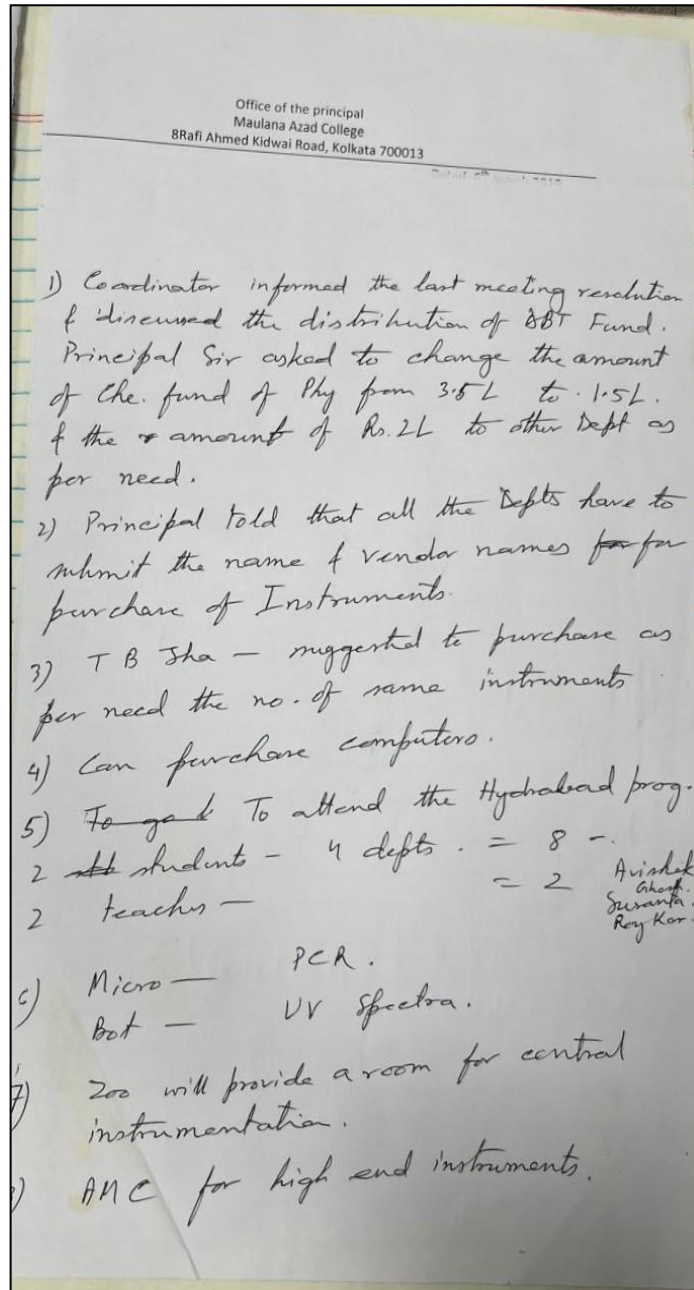 Office of the principal
Maulana Azad College
8Rafi Ahmed Kidwai Road, Kolkata 700013
1) Coordinator informed the last meeting resolution
& discussed the distribution of DBT Fund.
Principal Sir asked to change the amount
of Che. fund of Phy from 3.5L to 1.5L.
& the amount of Rs. 2L to other Dept as
per need.
2) Principal told that all the Depts have to
submit the name & vendor names for
purchase of Instruments.
3) T B Jha — suggested to purchase as
per need the no. of same instruments
4) Can purchase computers.
5) To attend the Hydrabad prog.
2 students - 4 depts. = 8 -.
2 teachers — = 2
Avishek
Ghosh.
Susanta.
Roy Kar.
6) Micro — PCR.
Bot — UV Spectra.
7) Zoo will provide a room for central
instrumentation.
) AMC for high end instruments.